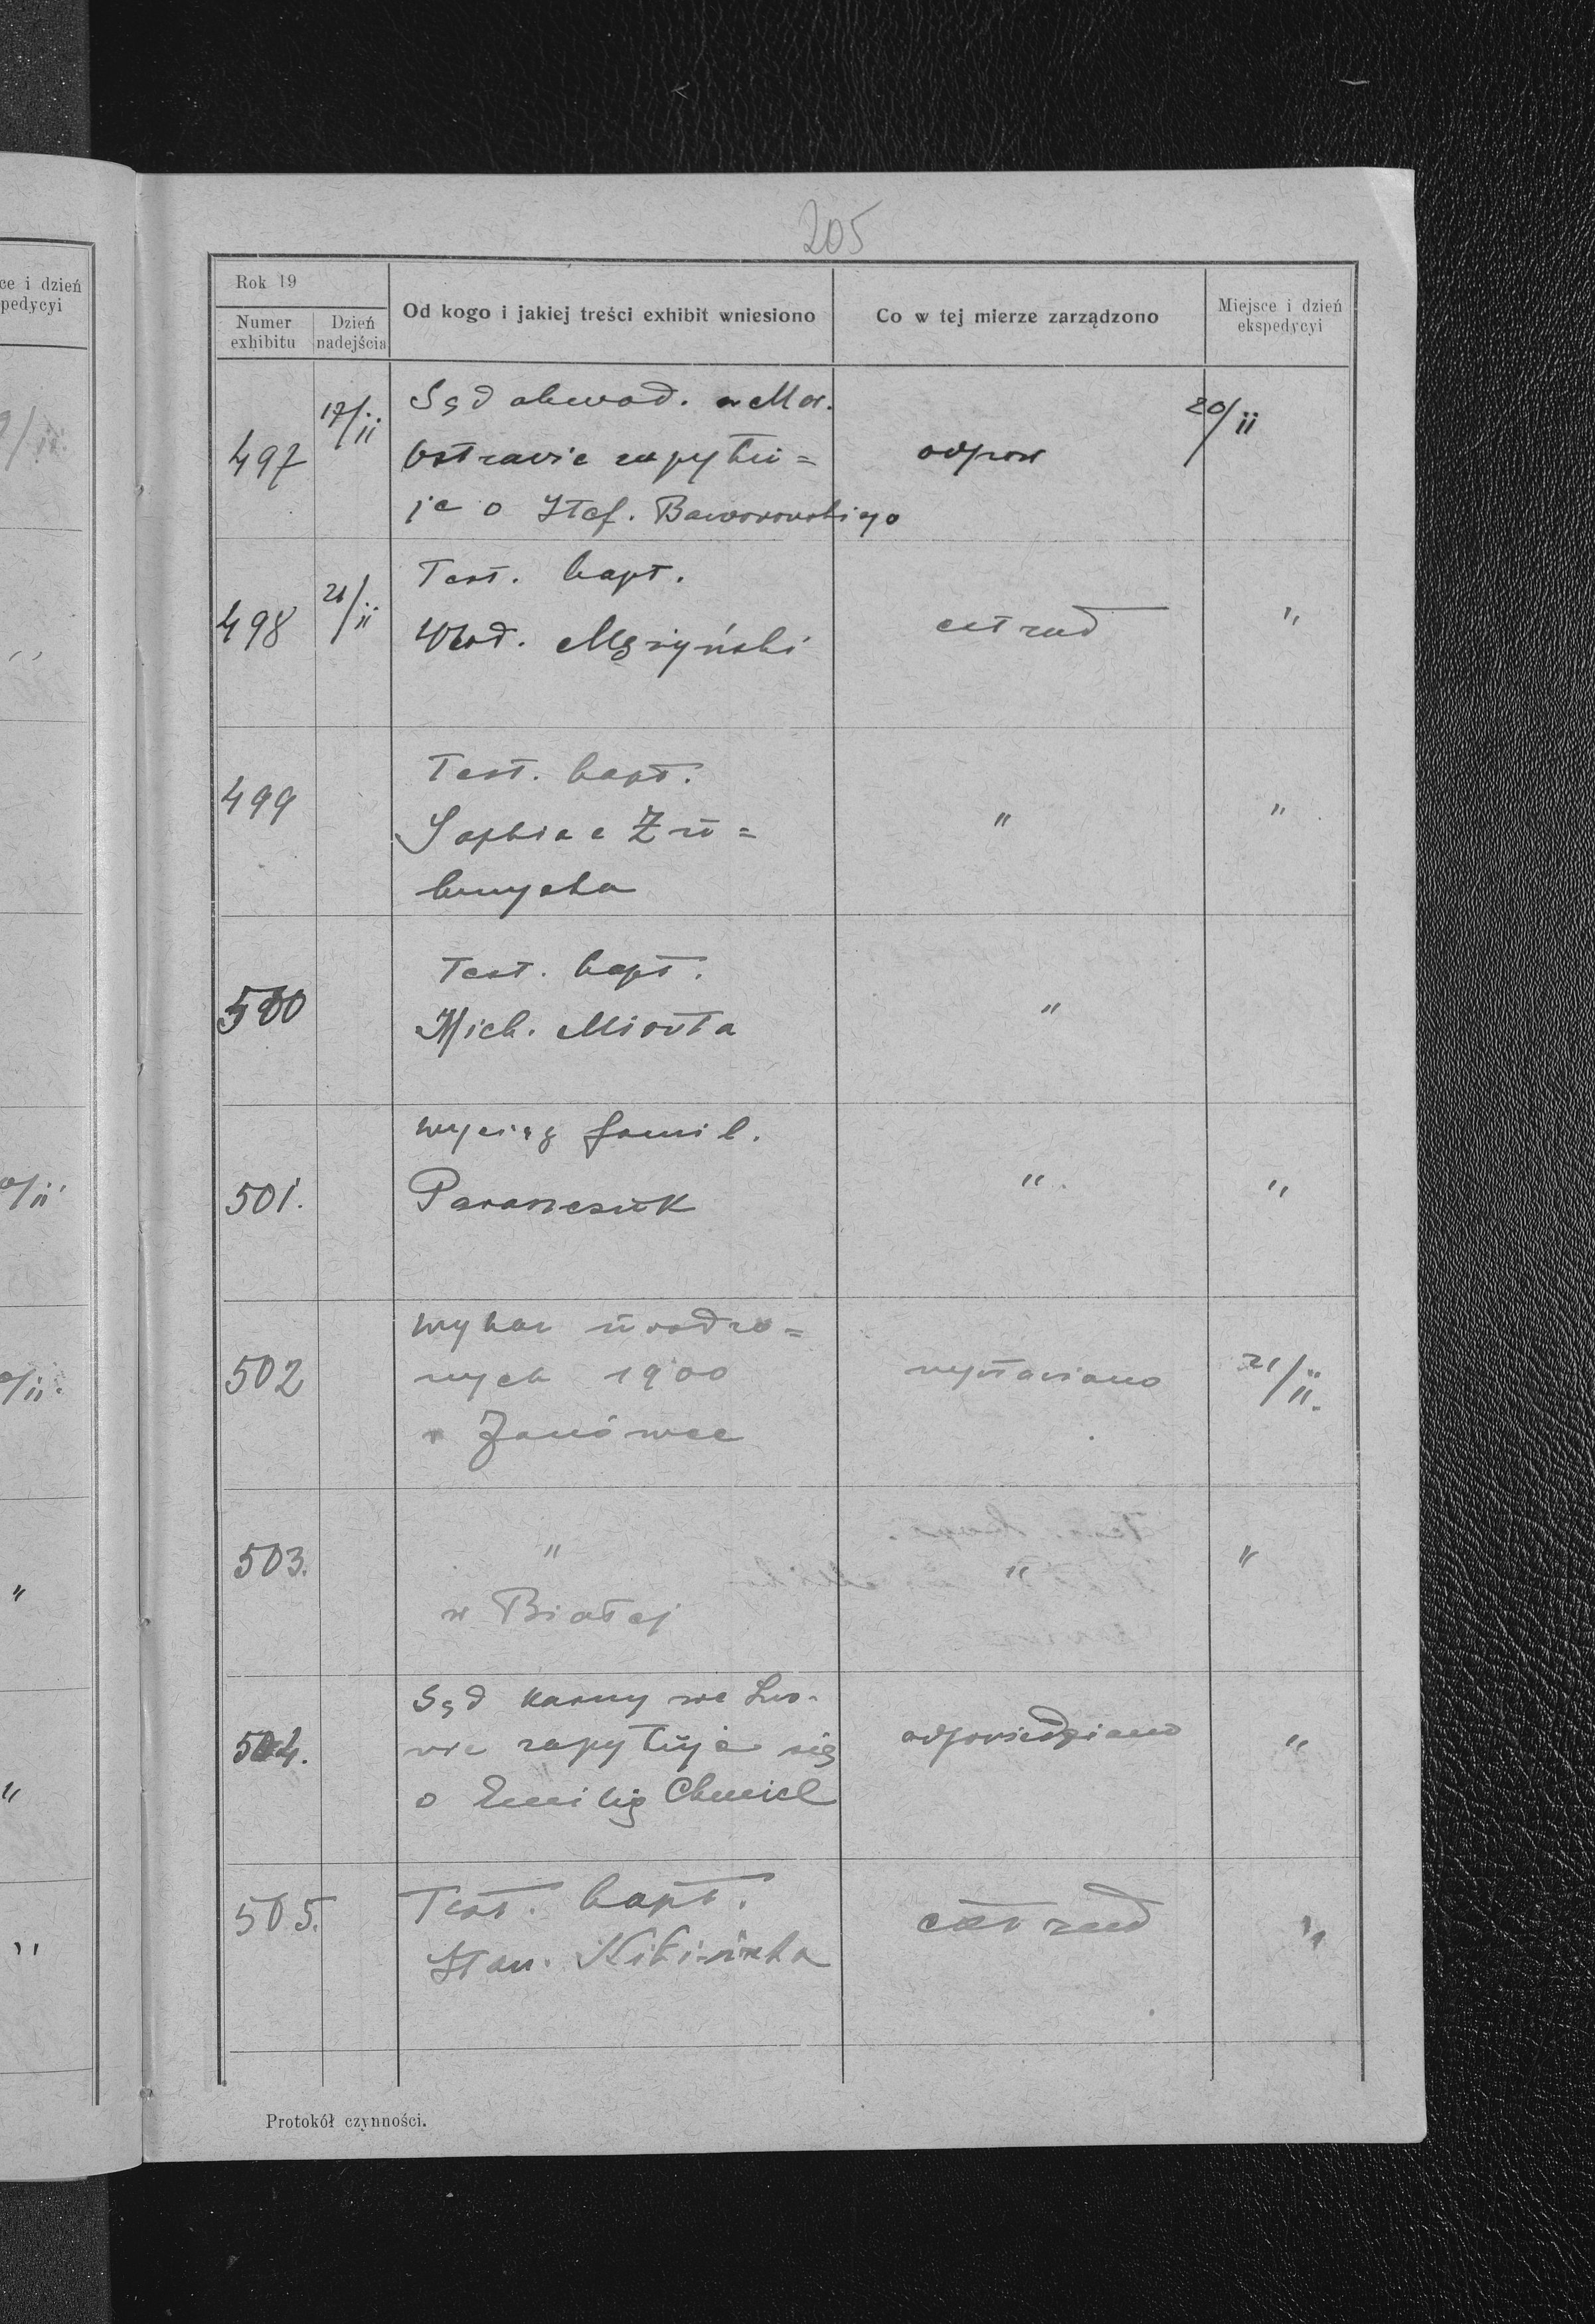 205
ce i dzień
pedycyi
Rok 19
Numer exhibitu
Dzień nadejścia
Od kogo i jakiej treści exhibit wniesiono
Co w tej mierze zarządzono
Miejsce i dzień ekspedycyi
497
17/ii
Sąd obwod. w Mor.
Ostrawie zapytu=
je o Stef. Baworowskiego
odpow
20/ii
498
21/ii
Test. bapt.
Wład. Mężyński
ext rad
"
499
Test. bapt.
Sophiae Zu=
brzycka
"
"
500
Test. bapt.
Mich. Miouta
"
501.
Wyciąg famil.
Paraszczuk
"
"
502
Wykaz urodzo=
nych 1900
w Janówce
wystawiono
21/ii.
503.
"
w Białej
"
"
504.
Sąd karny we Lwo-
wie zapytuje się
o Emilię Chmiel
odpowiedziano
"
505.
Test. bapt.
Stan.
"
Protokół czynności.